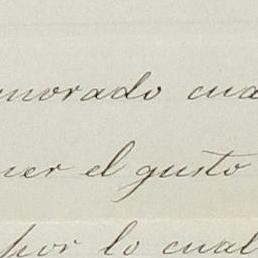 morado cua
ner el gusto
por lo cual